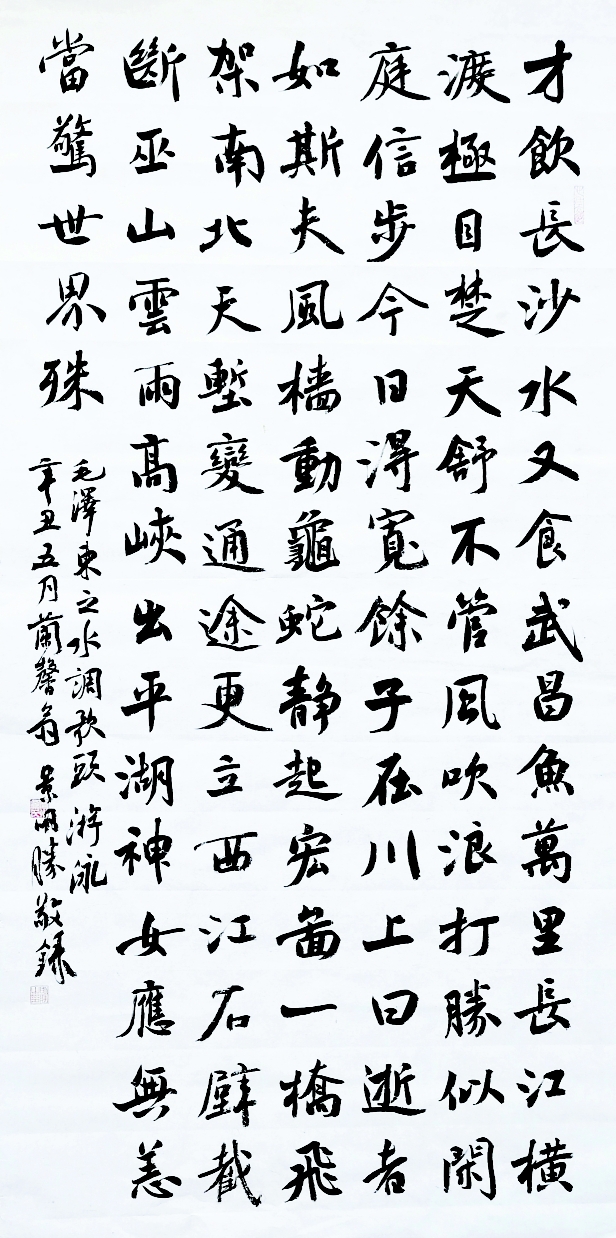 才飲長沙水又食武昌魚萬里長江橫
渡極目楚天舒不管風吹浪打勝似閑
庭信步今日得寬餘子在川上曰逝者
如斯夫風檣動龜蛇靜起宏啚一橋飛
架南北天塹變通途更立西江石壁截
斷巫山雲雨高峽出平湖神女應無恙
當驚世界殊
毛澤東之水調歌頭游泳
辛丑五月蘭馨翁景明勝敬錄